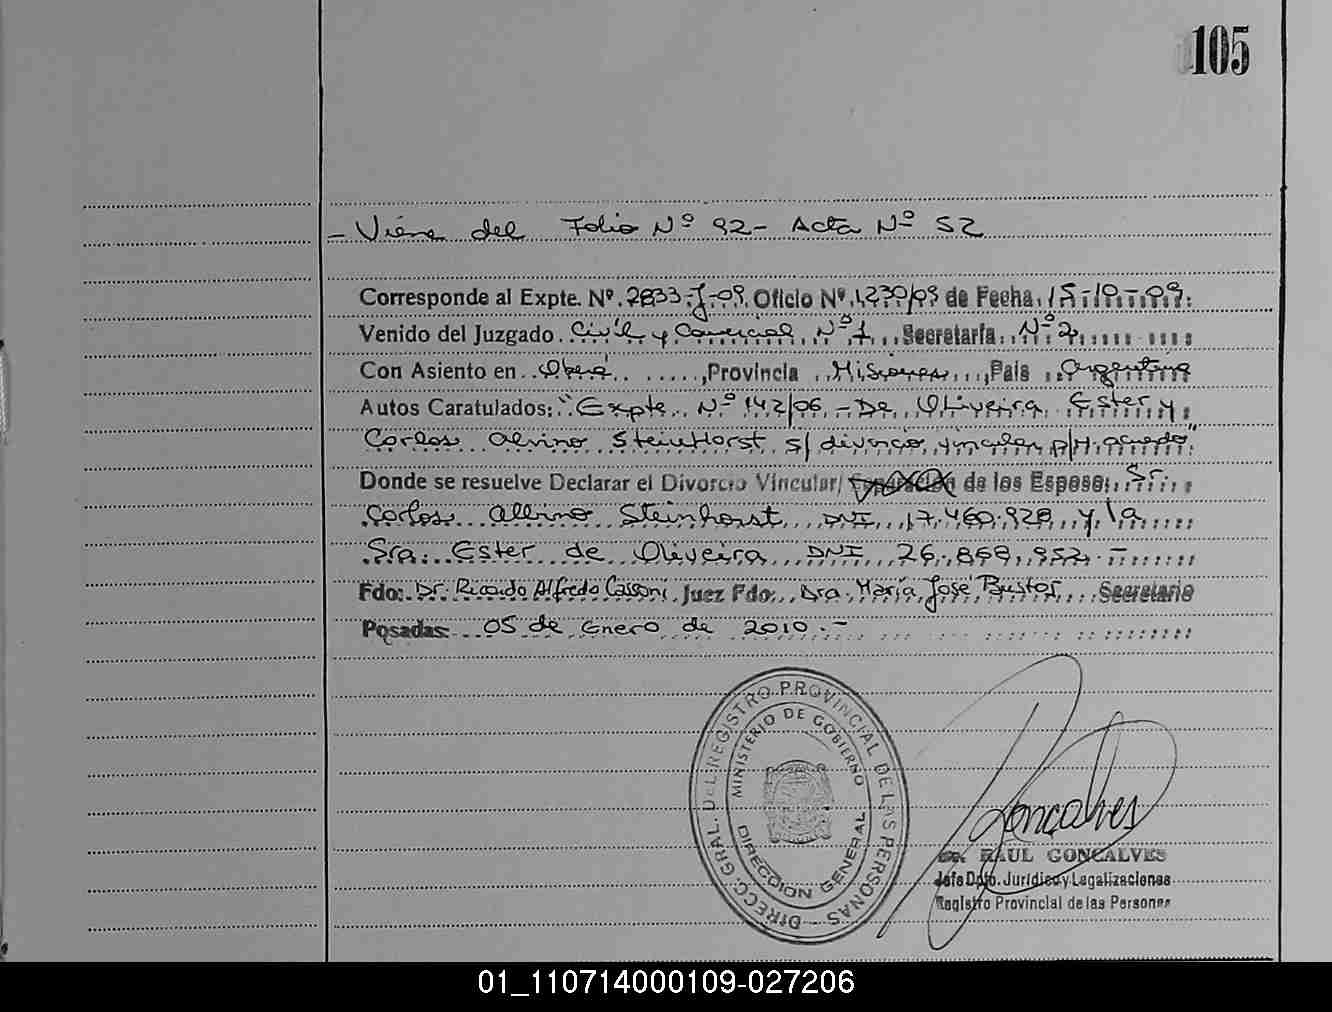 105
- Viene del Folio Nº 92 - Acta Nº 52
Corresponde al Expte. Nº. 2833-J-09. Oficio Nº. 1.230/09 de Fecha. 15-10-09
Venido del Juzgado. Civil y Comercial Nº 1 Secretaría. Nº 2
Con Asiento en Oberá, Provincia Misiones, País Argentina
Autos Caratulados: "Expte. Nº 142/06 - De Oliveira Ester y
Carlos Alvino SteinHorst s/ divorcio vincular p/M. acuerdo"
Donde se resuelve Declarar el Divorcio Vincular/ Separación de los Esposo: Sr.
Carlos Albino Steinhorst DNI 17.460.928 y la
Sra. Ester de Oliveira DNI 26.868.952.-
Fdo: Dr. Ricardo Alfredo Cassoni, Juez Fdo: Dra. María José Bustos Secretario
Posadas: 05 de Enero de 2010.-
DIRECC. GRAL. DEL REGISTRO PROVINCIAL DE LAS PERSONAS
MINISTERIO DE GOBIERNO
DIRECCION GENERAL
Goncalves
Dr. RAUL GONCALVES
Jefe Dpto. Jurídico y Legalizaciones
Registro Provincial de las Personas
01_110714000109-027206